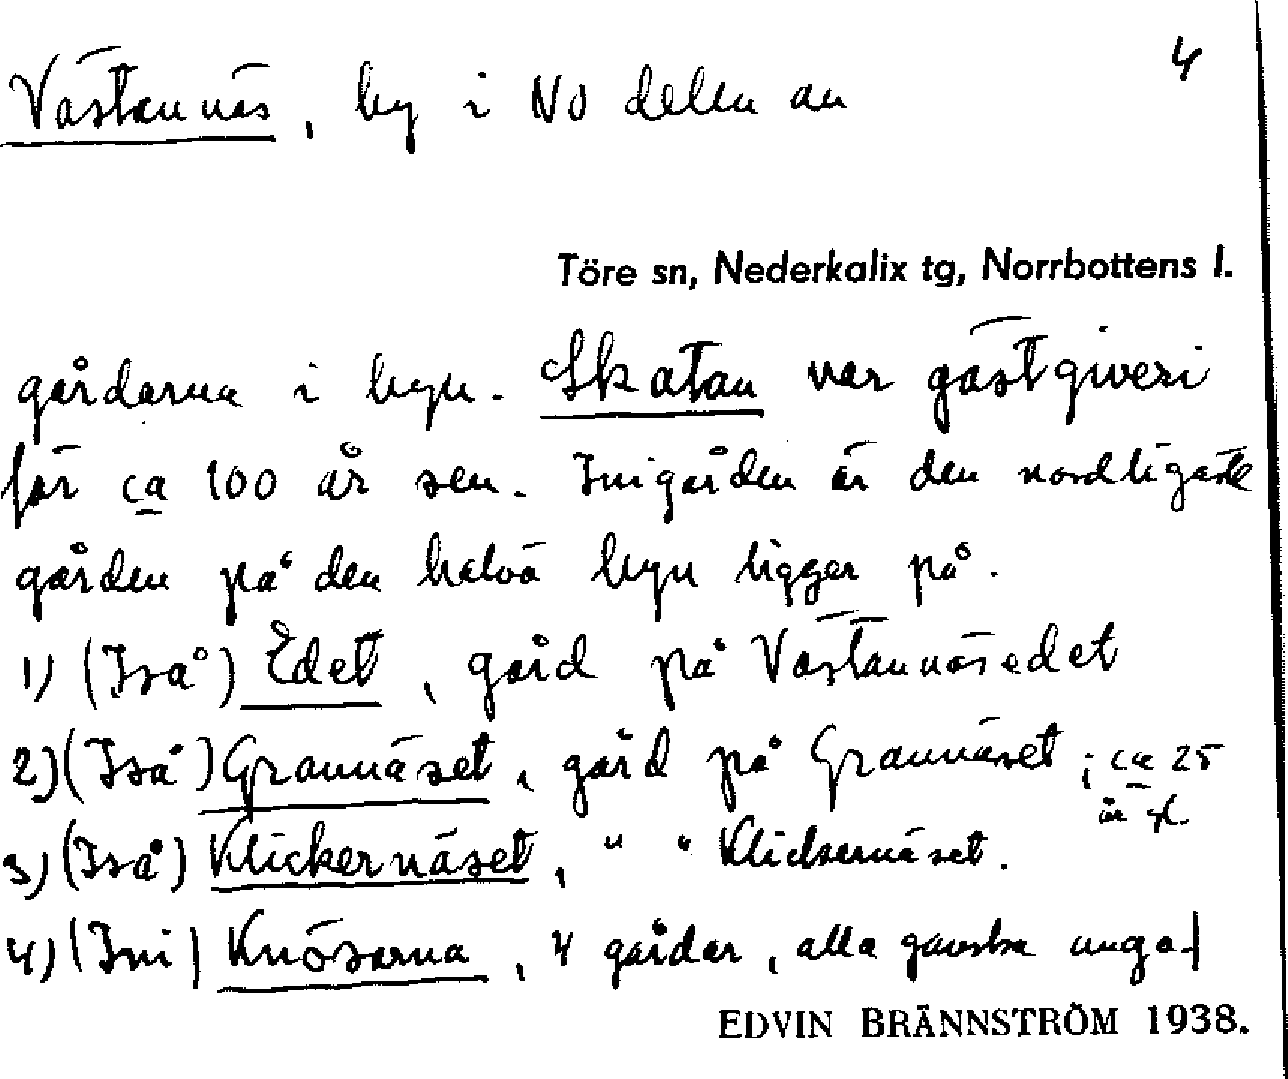 Västannäs, by i NO delen av
4
Töre sn, Nederkalix tg, Norrbottens l.
gårdarna i byn. Skatan var gästgiveri
för ca 100 år sen. Inigården är den nordligaste
gården på den halvö byn ligger på.
1) (Iså) Edet, gård på Västannäsedet
2) (Iså) Grannäset, gård på Grannäset; ca 25
år gl.
3) (Iså) Klickernäset, " " Klickernäset.
4) (Ini) Knösarna, 4 gårdar, alla ganska unga
EDVIN BRÄNNSTRÖM 1938.